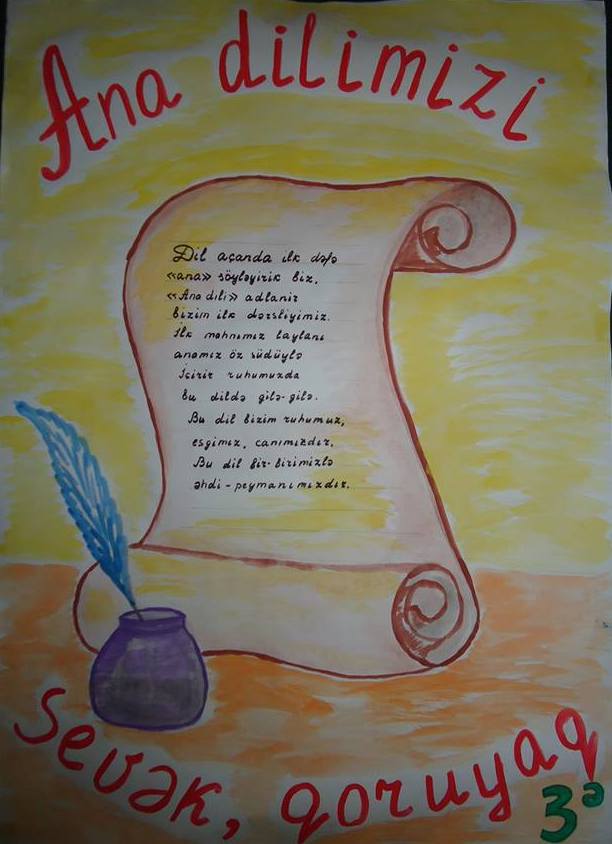 Ana dilimizi
Dil açanda ilk dəfə
«ana» söyləyirik biz.
«Ana dili» adlanir
bizim ilk dərsliyimiz.
İlk mahnımız laylanı
anamız öz südüylə
İçirir ruhumuzda
bu dildə gilə-gilə.
Bu dil bizim ruhumuz,
eşgimiz, canımızdır,
Bu dil bir-birimizlə
əhdi-peymanımızdır.
Sevək, qoruyaq
3ə